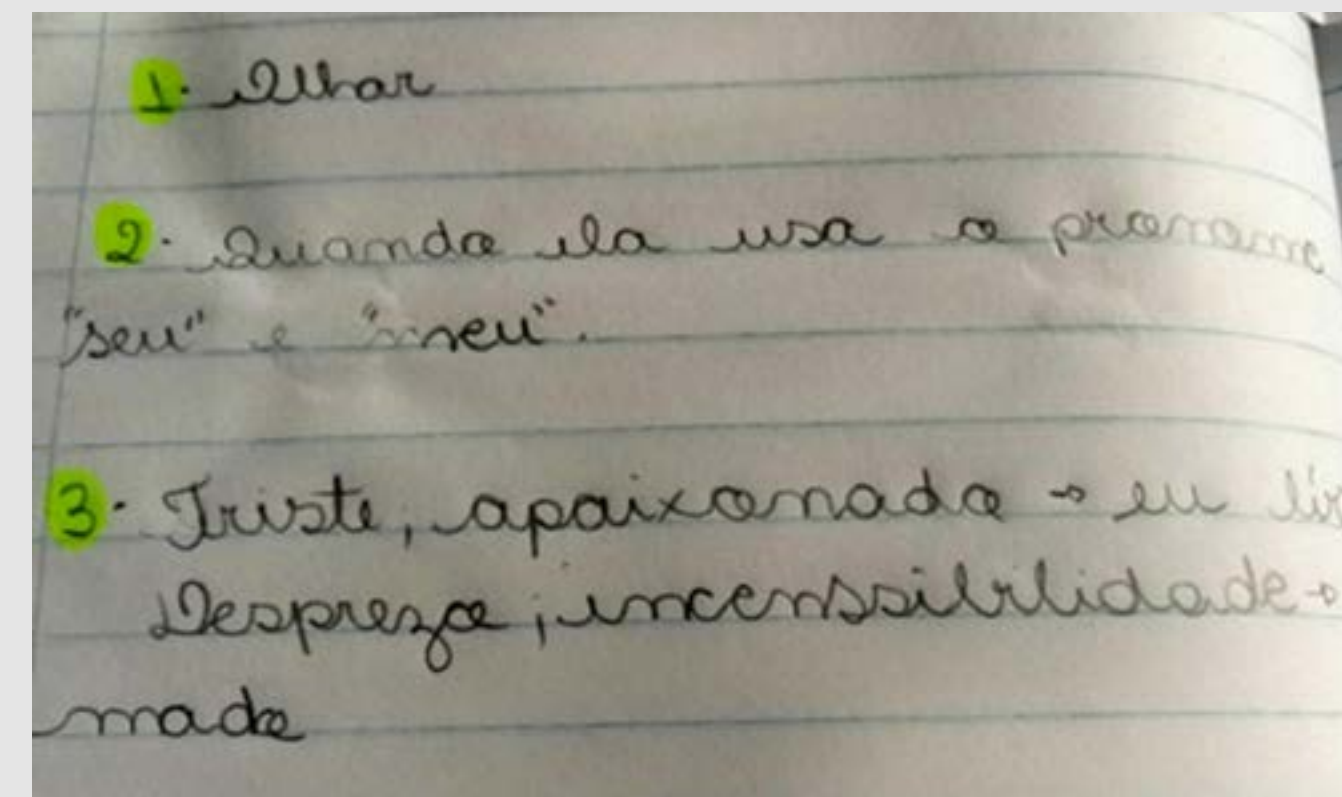 1. Olhar
2. Quando ela usa o pronome
"seu" e "meu".
3. Triste, apaixonado → eu
Desprezo, incenssibilidade →
mado